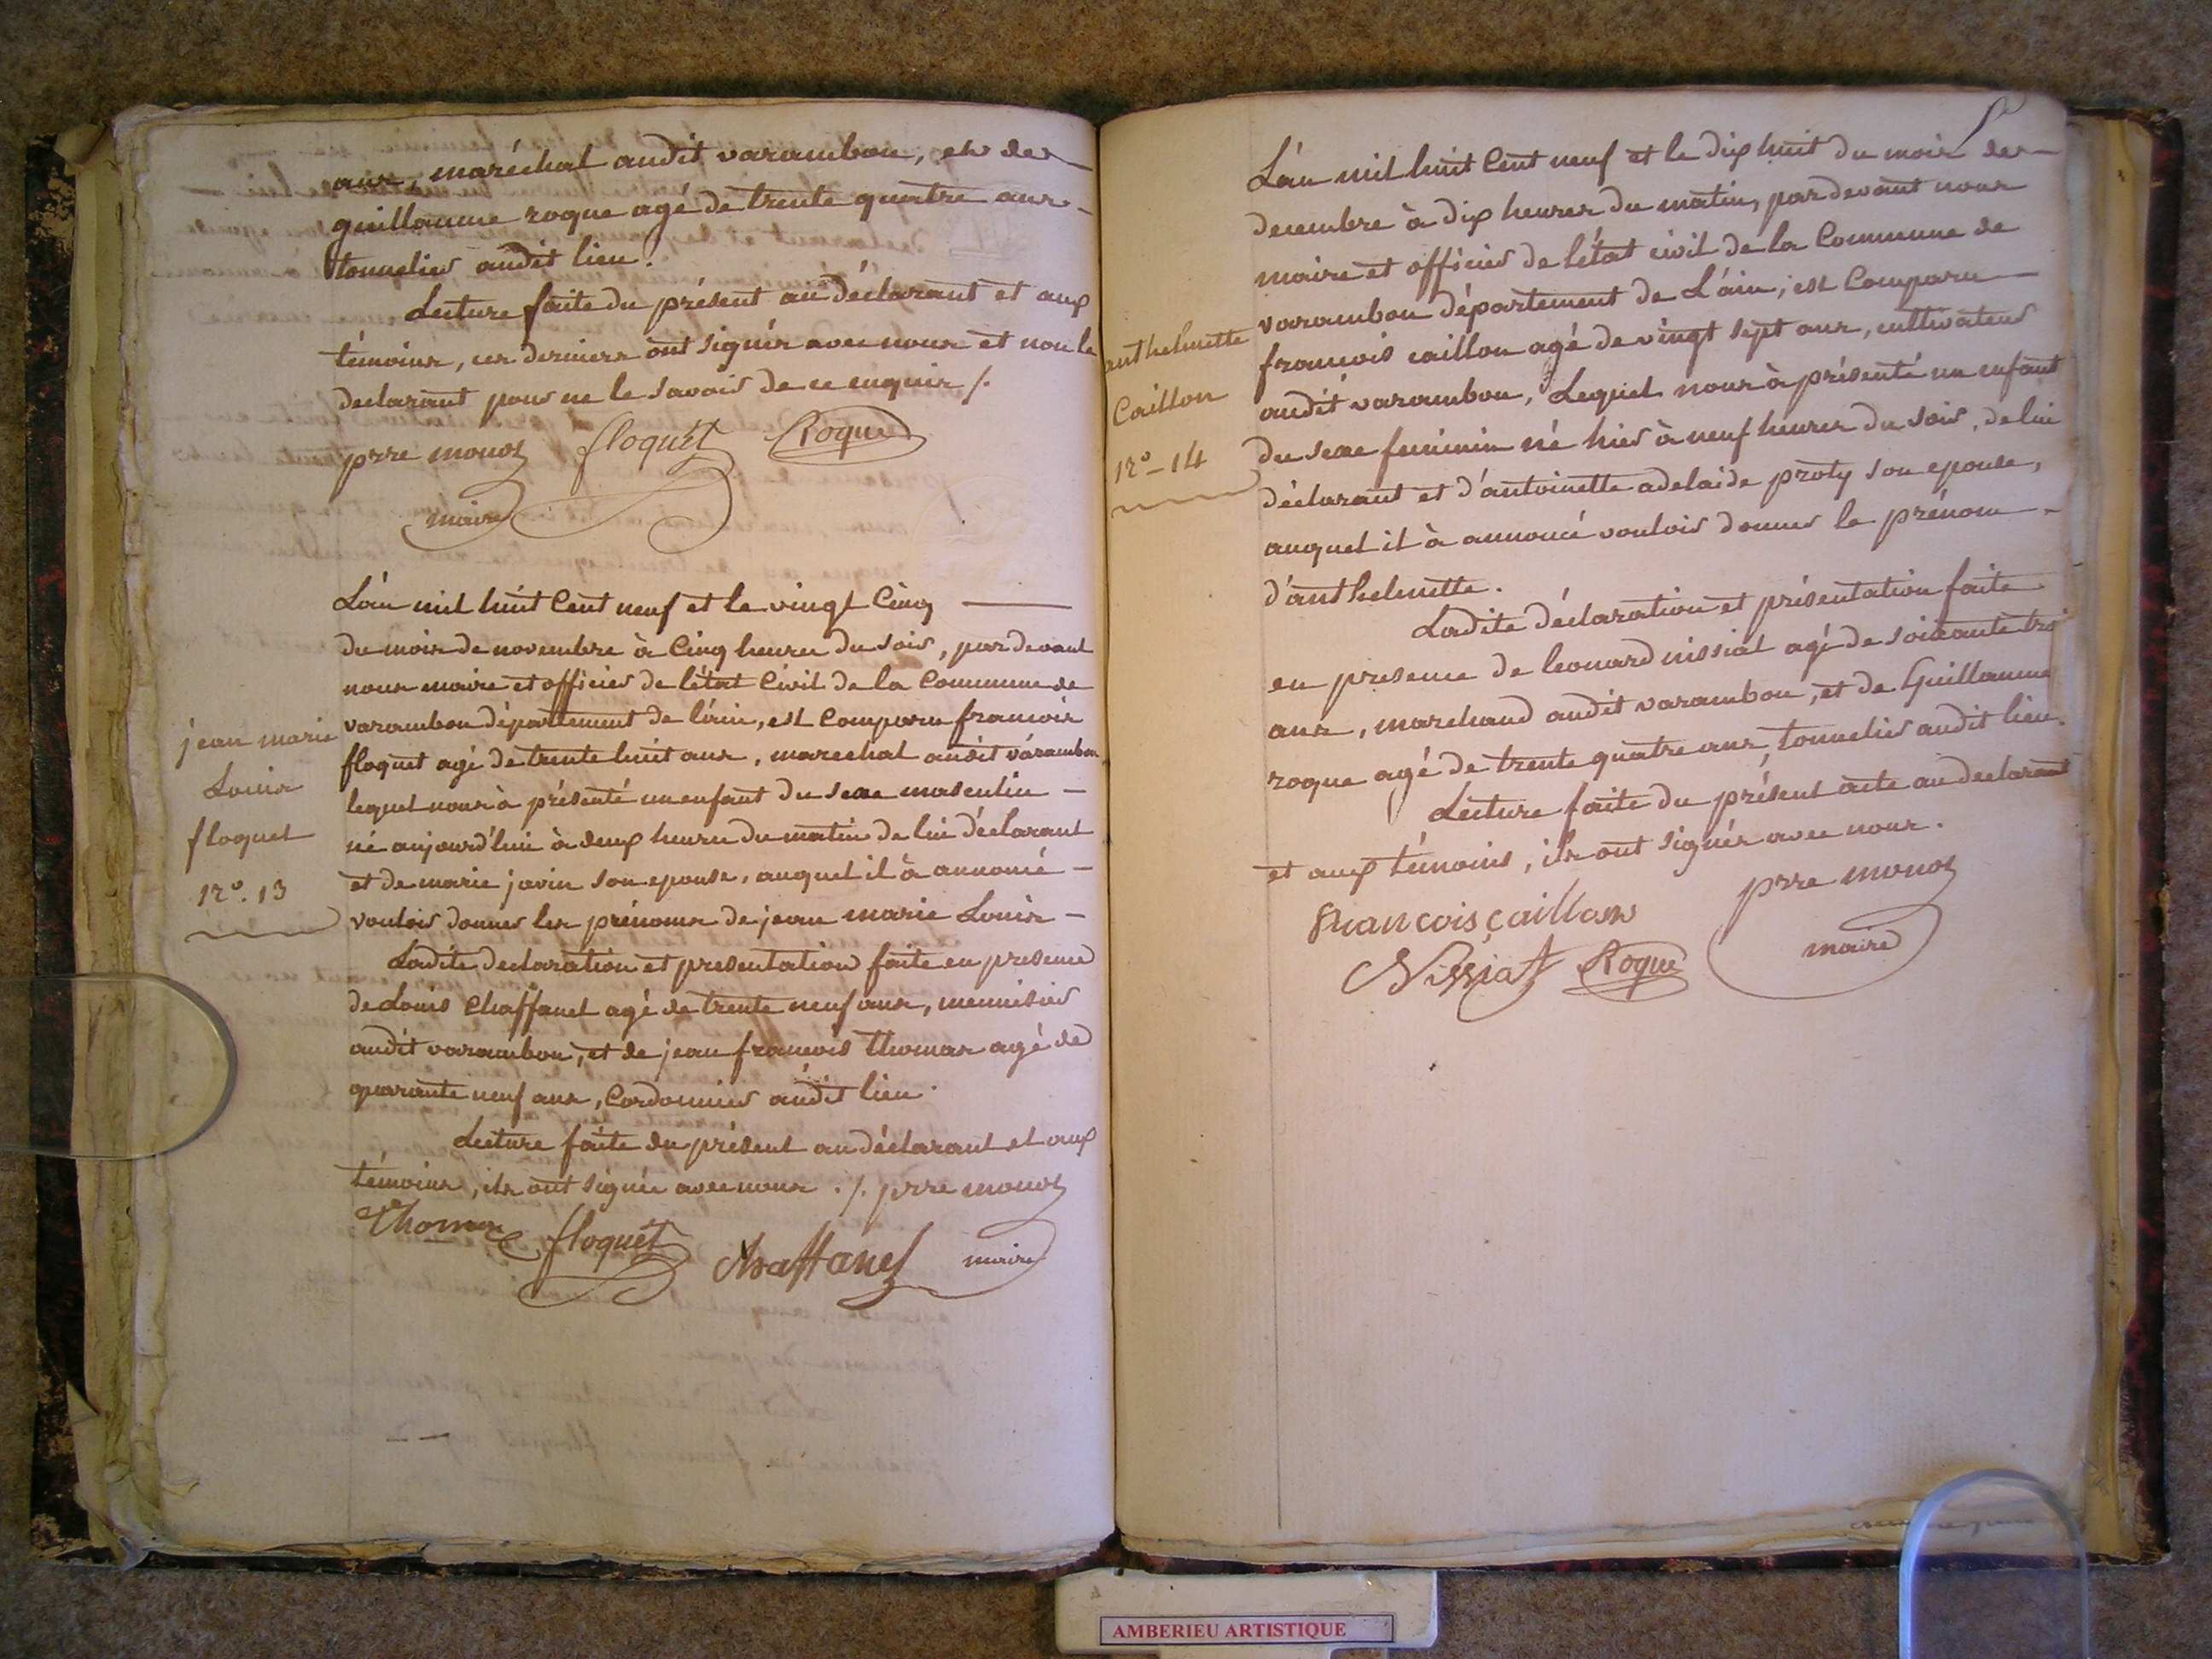 ans, maréchal audit varambon, et de
guillaume roque agé de trente quatre ans
tonnelier audit lieu.
Lecture faite du présent au déclarant et aux
témoins, ces derniers ont signés avec nous et non le
declarant pour ne le savoir de ce enquis /.
prre monoz floquet Roque
maire
L'an mil huit Cent neuf et le vingt Cinq
du mois de novembre à Cinq heures du soir, pardevant
nous maire et officier de l'état Civil de la Commune de
varambon département de l'ain, est Comparu francois
floquet agé de trente huit ans, marechal audit varambon
lequel nous à présenté un enfant du sexe masculin
né aujourd'hui à deux heures du matin de lui déclarant
et de marie javin son epouse, auquel il à annoncé
vouloir donner les prénoms de jean marie Louis
jean marie
Louis
floquet
no. 13
Ladite declaration et presentation faite en presence
de Louis Chaffanel agé de trente neuf ans, menuisier
audit varambon, et de jean francois thomas agé de
quarante neuf ans, Cordonnier audit lieu.
Lecture faite du présent au déclarant et aux
témoins, ils ont signés avec nous ./. prre monoz
Thomas floquet Chaffanel maire
L'an mil huit Cent neuf et le dix huit du mois de
decembre à dix heures du matin, pardevant nous
maire et officier de l'état civil de la Commune de
varambon département de L'ain, est Comparu
francois caillon agé de vingt sept ans, cultivateur
audit varambon, Lequel nous à présenté un enfant
du sexe feminin né hier à neuf heures du soir, de lui
déclarant et d'antoinette adelaide proty son epouse,
auquel il à annoncé vouloir donner le prénom
d'anthelmette.
anthelmette
Caillon
no-14
Ladite déclaration et présentation faite
en presence de leonard nissiat agé de soixante troi
ans, marchand audit varambon, et de Guillaume
roque agé de trente quatre ans, tonnelier audit lieu.
Lecture faite du présent acte au declarant
et aux témoins, ils ont signés avec nous.
francois caillon prre monoz
Nissiat Roque maire
AMBERIEU ARTISTIQUE